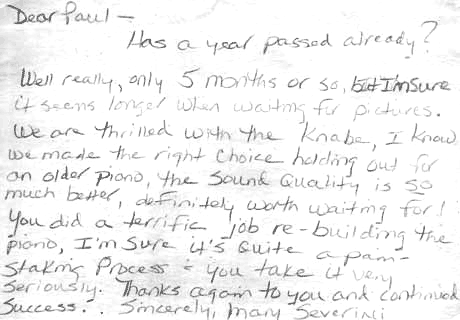 Dear Paul —
Has a year passed already?
Well really, only 5 months or so, but I'm sure
it seems longer when waiting for pictures.
We are thrilled with the Knabe, I know
we made the right choice holding out for
an older piano, the sound quality is so
much better, definitely worth waiting for!
You did a terrific job re-building the
piano, I'm sure it's quite a pain-
staking process & you take it very
seriously. Thanks again to you and continued
success. Sincerely, Mary Severini